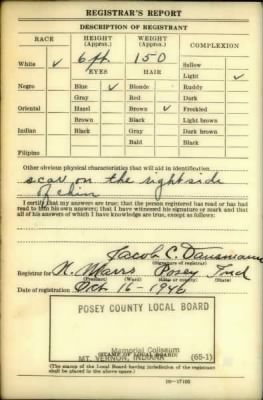 REGISTRAR'S REPORT
DESCRIPTION OF REGISTRANT
RACE HEIGHT (Approx.) WEIGHT (Approx.) COMPLEXION
White ✓ 6 ft. 150 Sallow
EYES HAIR Light ✓
Negro Blue ✓ Blonde Ruddy
Gray Red Dark
Oriental Hazel Brown ✓ Freckled
Brown Black Light brown
Indian Black Gray Dark brown
Bald Black
Filipino
Other obvious physical characteristics that will aid in identification
scar on the right side
of chin
I certify that my answers are true; that the person registered has read or has had
read to him his own answers; that I have witnessed his signature or mark and that
all of his answers of which I have knowledge are true, except as follows:
Jacob C.
(Signature of registrar)
Registrar for N. Marrs Posey Ind
(Precinct) (Ward) (City or county) (State)
Date of registration Oct 16 - 1940
POSEY COUNTY LOCAL BOARD
Memorial Coliseum
(STAMP OF LOCAL BOARD)
MT. VERNON, INDIANA (65-1)
(The stamp of the Local Board having jurisdiction of the registrant
shall be placed in the above space.)